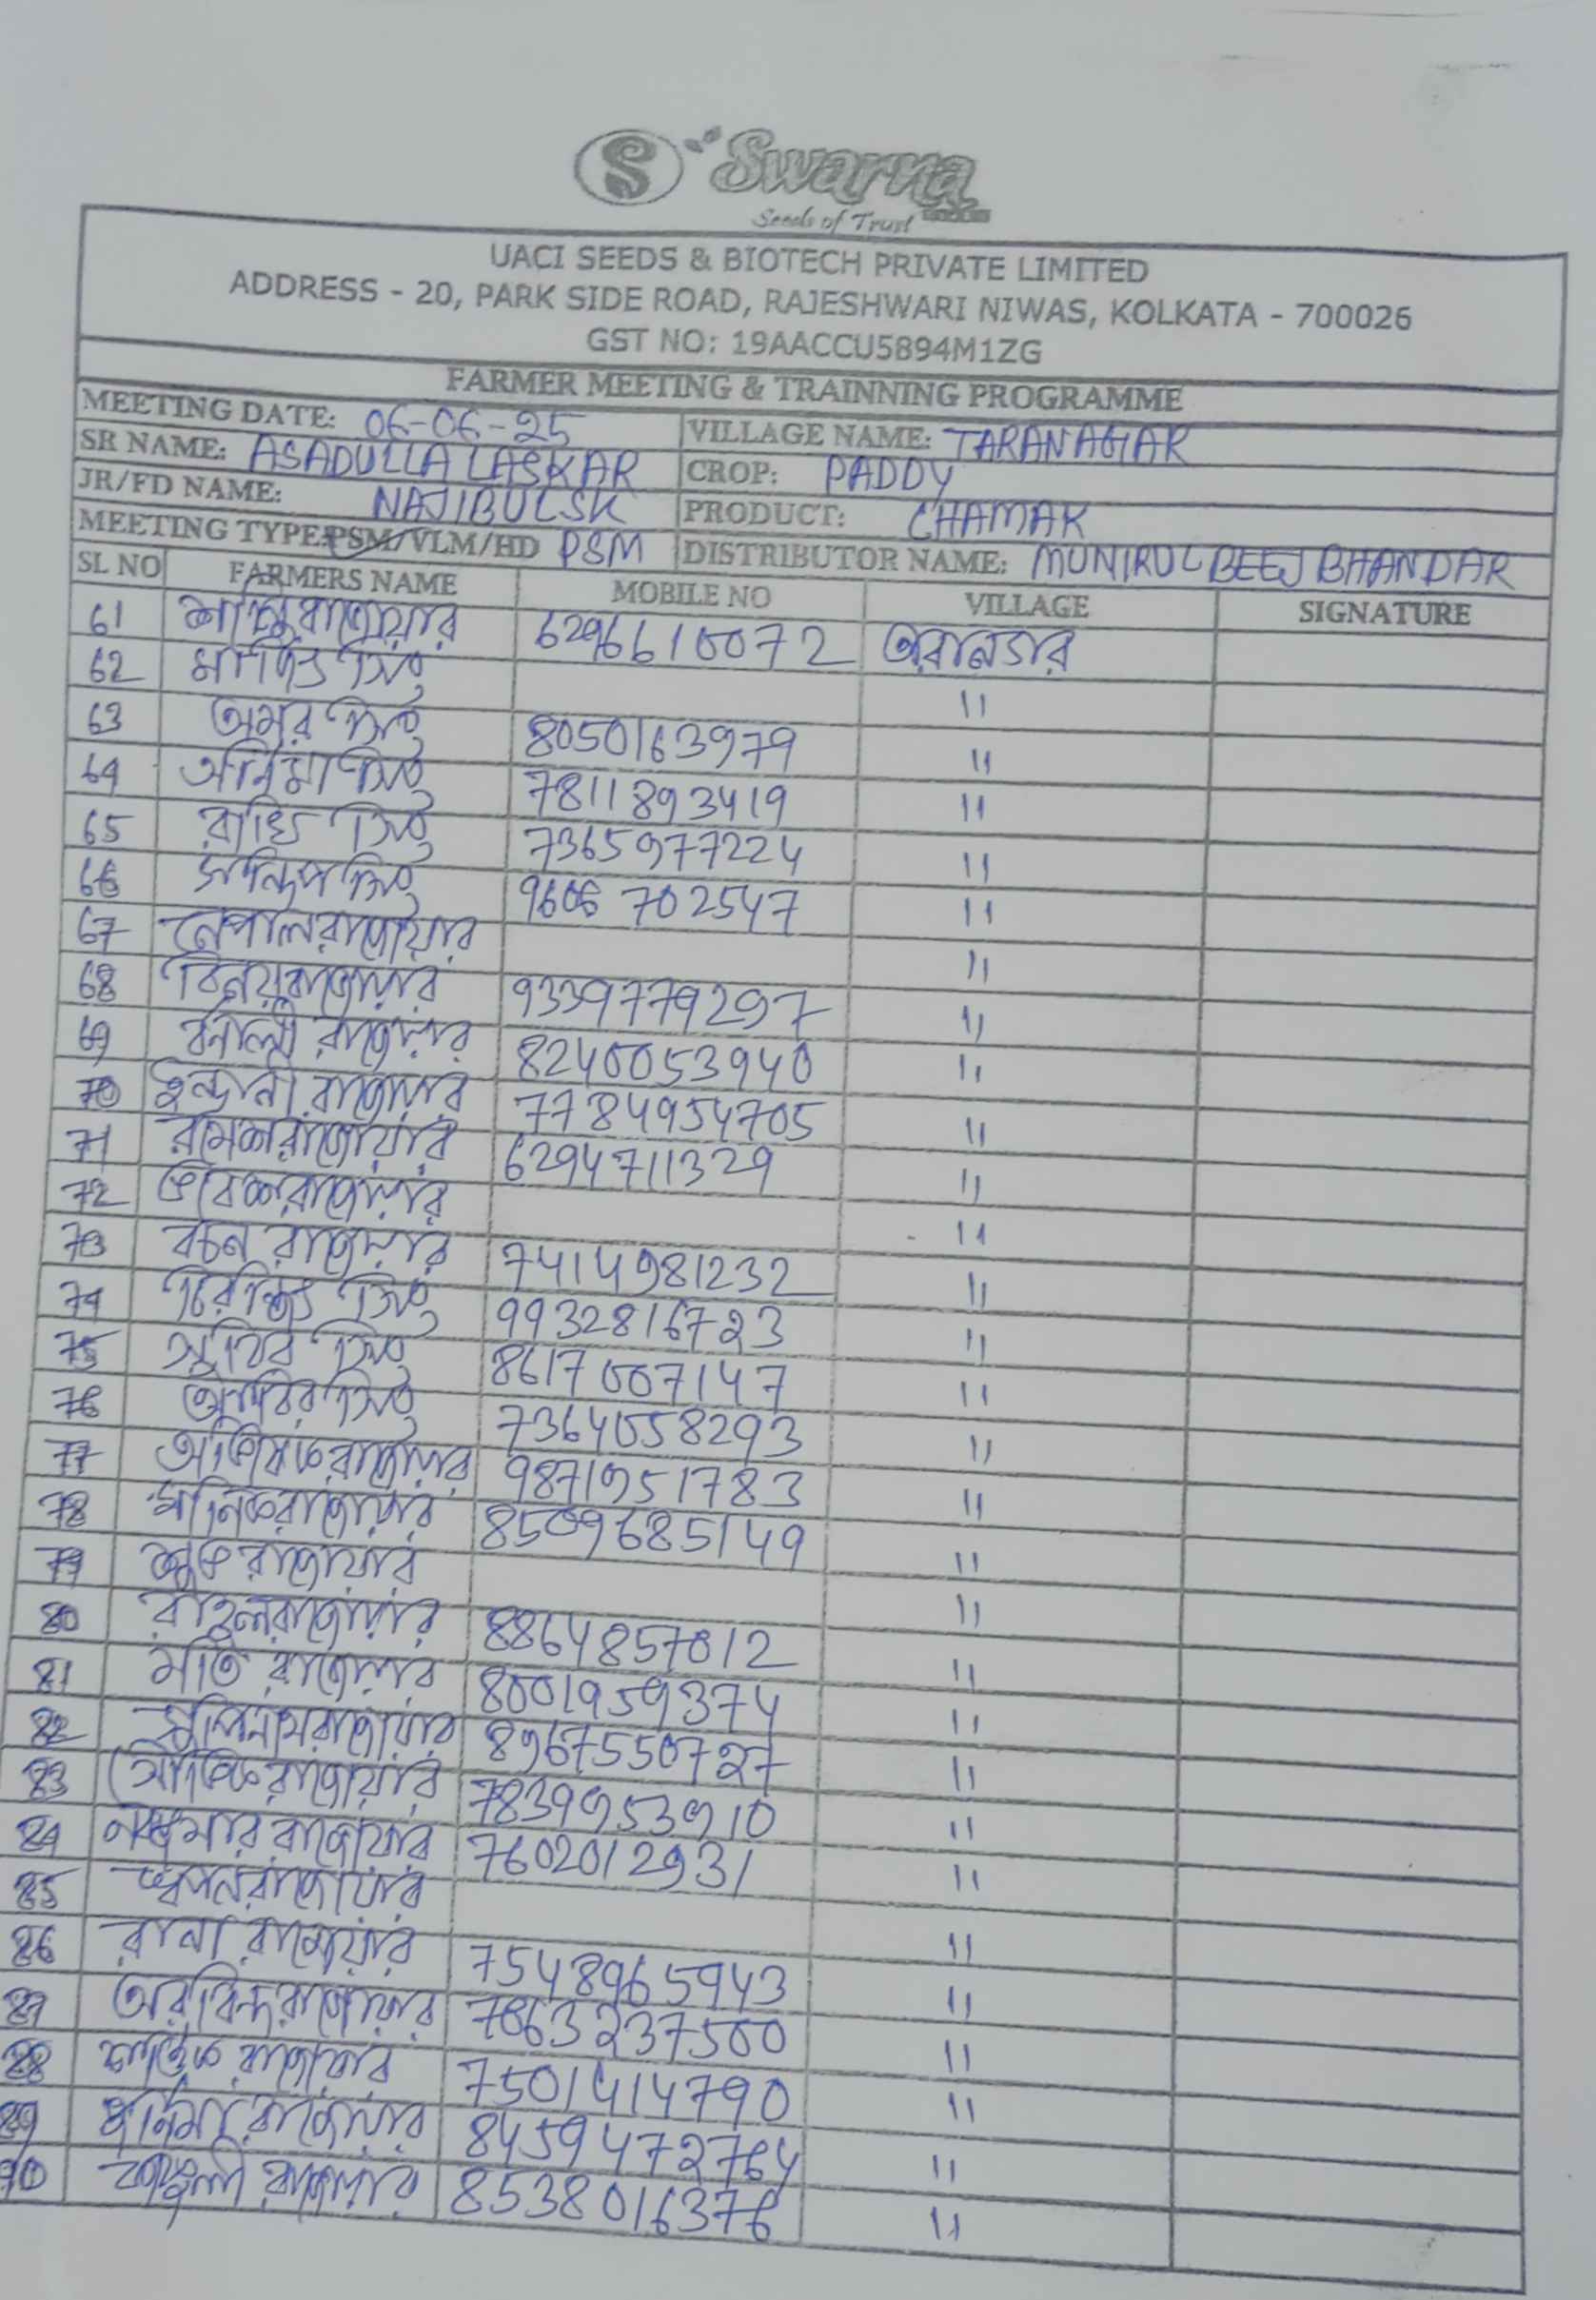 S Swarna
Seeds of Trust
UACI SEEDS & BIOTECH PRIVATE LIMITED
ADDRESS - 20, PARK SIDE ROAD, RAJESHWARI NIWAS, KOLKATA - 700026
GST NO: 19AACCU5894M1ZG
FARMER MEETING & TRAINNING PROGRAMME
MEETING DATE: 06-06-25 VILLAGE NAME: TARANAGAR
SR NAME: ASADULLA LASKAR CROP: PADDY
JR/FD NAME: NAJIBUL SK PRODUCT: CHAMAK
MEETING TYPE: PSM/VLM/HD PSM DISTRIBUTOR NAME: MUNIRUL BEEJ BHANDAR
SL NO FARMERS NAME MOBILE NO VILLAGE SIGNATURE
61 রাজোয়ার 6296610072
62 সিংহ "
63 অমর সিংহ 8050163979 "
64 অনিমা সিংহ 7811893419 "
65 রাখি সিংহ 7365977224 "
66 সন্দিপ সিংহ 9606702547 "
67 নেপাল রাজোয়ার "
68 বিনয় রাজোয়ার 9339779297 "
69 রাজোয়ার 8240053940 "
70 ইন্দ্রানী রাজোয়ার 7784954705 "
71 রমেশ রাজোয়ার 6294711329 "
72 ভবেশ রাজোয়ার "
73 বচন রাজোয়ার 7414981232 "
74 সিংহ 9932816723 "
75 সুবির সিংহ 8617007147 "
76 আবির সিংহ 7364058293 "
77 অভিষেক রাজোয়ার 9871951783 "
78 মানিক রাজোয়ার 8509685149 "
79 শুভ রাজোয়ার "
80 রাহুল রাজোয়ার 8864857012 "
81 মতি রাজোয়ার 8001959374 "
82 রাজোয়ার 8967550727 "
83 সৌভিক রাজোয়ার 7839953910 "
84 রাজোয়ার 7602012931 "
85 স্বপন রাজোয়ার "
86 রানা রাজোয়ার 7548965943 "
87 অরবিন্দ রাজোয়ার 7063237500 "
88 রাজোয়ার 7501414790 "
89 রাজোয়ার 8459472764 "
90 রাজোয়ার 8538016376 "